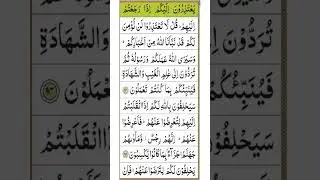 يَعْتَذِرُونَ إِلَيْكُمْ إِذَا رَجَعْتُمْ
إِلَيْهِمْ ۚ قُلْ لَّا تَعْتَذِرُوا لَنْ نُّؤْمِنَ
لَكُمْ قَدْ نَبَّأَنَا اللّٰهُ مِنْ أَخْبَارِكُمْ ۚ
وَسَيَرَى اللّٰهُ عَمَلَكُمْ وَرَسُولُهُ ثُمَّ
تُرَدُّونَ إِلَىٰ عٰلِمِ الْغَيْبِ وَالشَّهَادَةِ
فَيُنَبِّئُكُمْ بِمَا كُنْتُمْ تَعْمَلُونَ ﴿٩٤﴾
سَيَحْلِفُونَ بِاللّٰهِ لَكُمْ إِذَا انْقَلَبْتُمْ
إِلَيْهِمْ لِتُعْرِضُوا عَنْهُمْ ۖ فَأَعْرِضُوا
عَنْهُمْ ۖ إِنَّهُمْ رِجْسٌ ۖ وَّمَأْوٰىهُمْ
جَهَنَّمُ جَزَآءً بِمَا كَانُوا يَكْسِبُونَ ﴿٩٥﴾
يَحْلِفُونَ لَكُمْ لِتَرْضَوْا عَنْهُمْ ۖ فَإِنْ